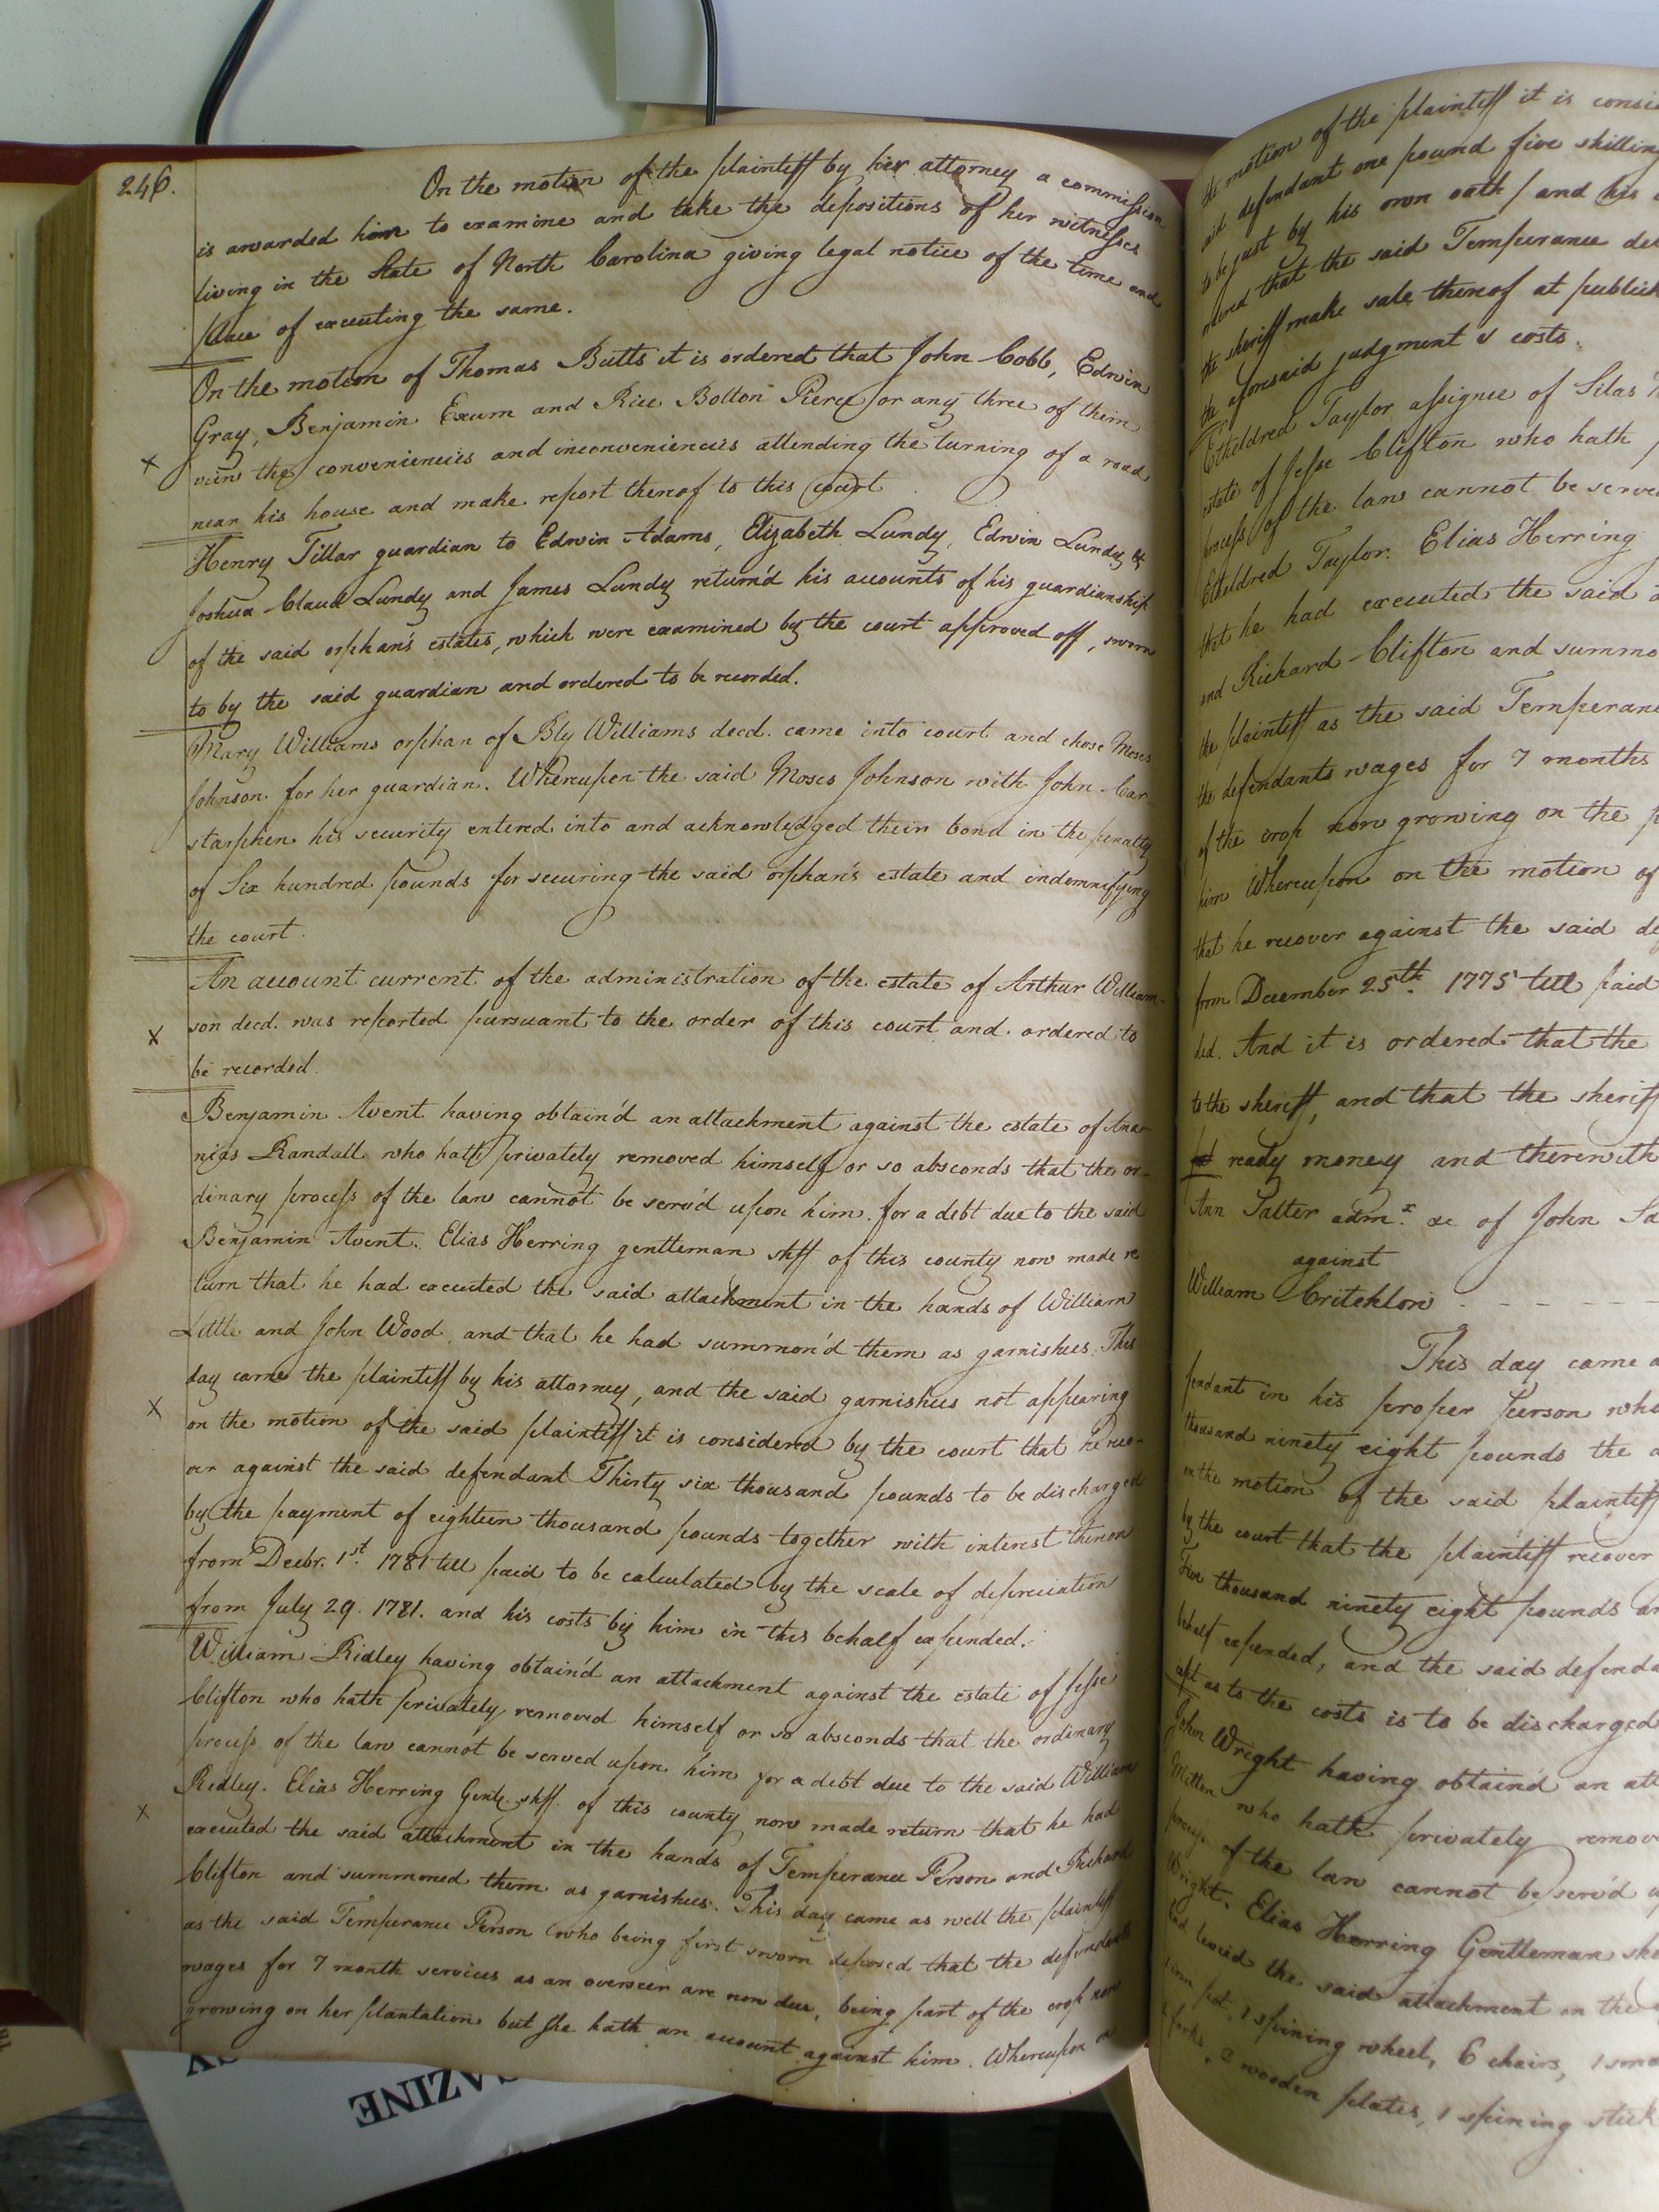 246.
On the motion of the plaintiff by her attorney a commission
is awarded him to examine and take the depositions of her witnesses
living in the State of North Carolina giving legal notice of the time and
place of executing the same.
On the motion of Thomas Butts it is ordered that John Cobb, Edwin
Gray, Benjamin Exum and Rice Bolton Pierce or any three of them
view the conveniencies and inconveniencies attending the turning of a road
near his house and make report thereof to this court
Henry Tillar guardian to Edwin Adams, Elizabeth Lundy, Edwin Lundy &
Joshua Claud Lundy and James Lundy return'd his accounts of his guardianship
of the said orphan's estates, which were examined by the court approved off, sworn
to by the said guardian and ordered to be recorded.
Mary Williams orphan of Bly Williams decd. came into court and chose Moses
Johnson for her guardian. Whereupon the said Moses Johnson with John Car
starphen his security entered into and acknowledged their bond in the penalty
of Six hundred pounds for securing the said orphan's estate and indemnifying
the court.
An account current of the administration of the estate of Arthur William-
son decd. was reported pursuant to the order of this court and ordered to
be recorded.
Benjamin Avent having obtain'd an attachment against the estate of Ana-
nias Randall who hath privately removed himself or so absconds that the or-
dinary process of the law cannot be serv'd upon him for a debt due to the said
Benjamin Avent. Elias Herring gentleman shff of this county now made re
turn that he had executed the said attachment in the hands of William
Little and John Wood, and that he had summon'd them as garnishees. This
day came the plaintiff by his attorney, and the said garnishees not appearing
on the motion of the said plaintiff it is considered by the court that he reco-
ver against the said defendant Thirty six thousand pounds to be discharged
by the payment of eighteen thousand pounds together with interest thereon
from Decbr. 1st. 1781 till paid to be calculated by the scale of depreciation
from July 29. 1781. and his costs by him in this behalf expended.
William Ridley having obtain'd an attachment against the estate of Jesse
Clifton who hath privately removed himself or so absconds that the ordinary
process of the law cannot be served upon him for a debt due to the said William
Ridley. Elias Herring Gentl. shff. of this county now made return that he had
executed the said attachment in the hands of Temperance Person and Richard
Clifton and summoned them as garnishees. This day came as well the plaintiff
as the said Temperance Person who being first sworn deposed that the defendants
wages for 7 month services as an overseer are now due, being part of the crop now
growing on her plantation but she hath an account against him. Whereupon on
the motion of the plaintiff it is consi
said defendant one pound five shilling
to be just by his own oath / and his
ordered that the said Temperance de
the sheriff make sale thereof at publick
the aforesaid judgment & costs.
Etheldred Taylor assignee of Silas
estate of Jesse Clifton who hath
process of the law cannot be serve
Etheldred Taylor. Elias Herring
that he had executed the said a
and Richard Clifton and summo
the plaintiff as the said Temperan
the defendants wages for 7 months
of the crop now growing on the p
him Whereupon on the motion of
that he recover against the said de
from December 25th. 1775 till paid
ded. And it is ordered that the
to the sheriff, and that the sheriff
ready money and therewith
Ann Salter admx. &c of John Sa
against
William Critchlow
This day came a
fendant in his proper Person who
thousand ninety eight pounds the
on the motion of the said plaintiff
by the court that the plaintiff recover
Five thousand ninety eight pounds an
behalf expended, and the said defenda
cept as to the costs is to be discharged
John Wright having obtain'd an att
Mitten who hath privately remov
process of the law cannot be serv'd u
Wright. Elias Herring Gentleman she
had levied the said attachment on the
1 iron pot, 1 spining wheel, 6 chairs, 1 sma
forks, 2 wooden plates, 1 spining stick
AZINE